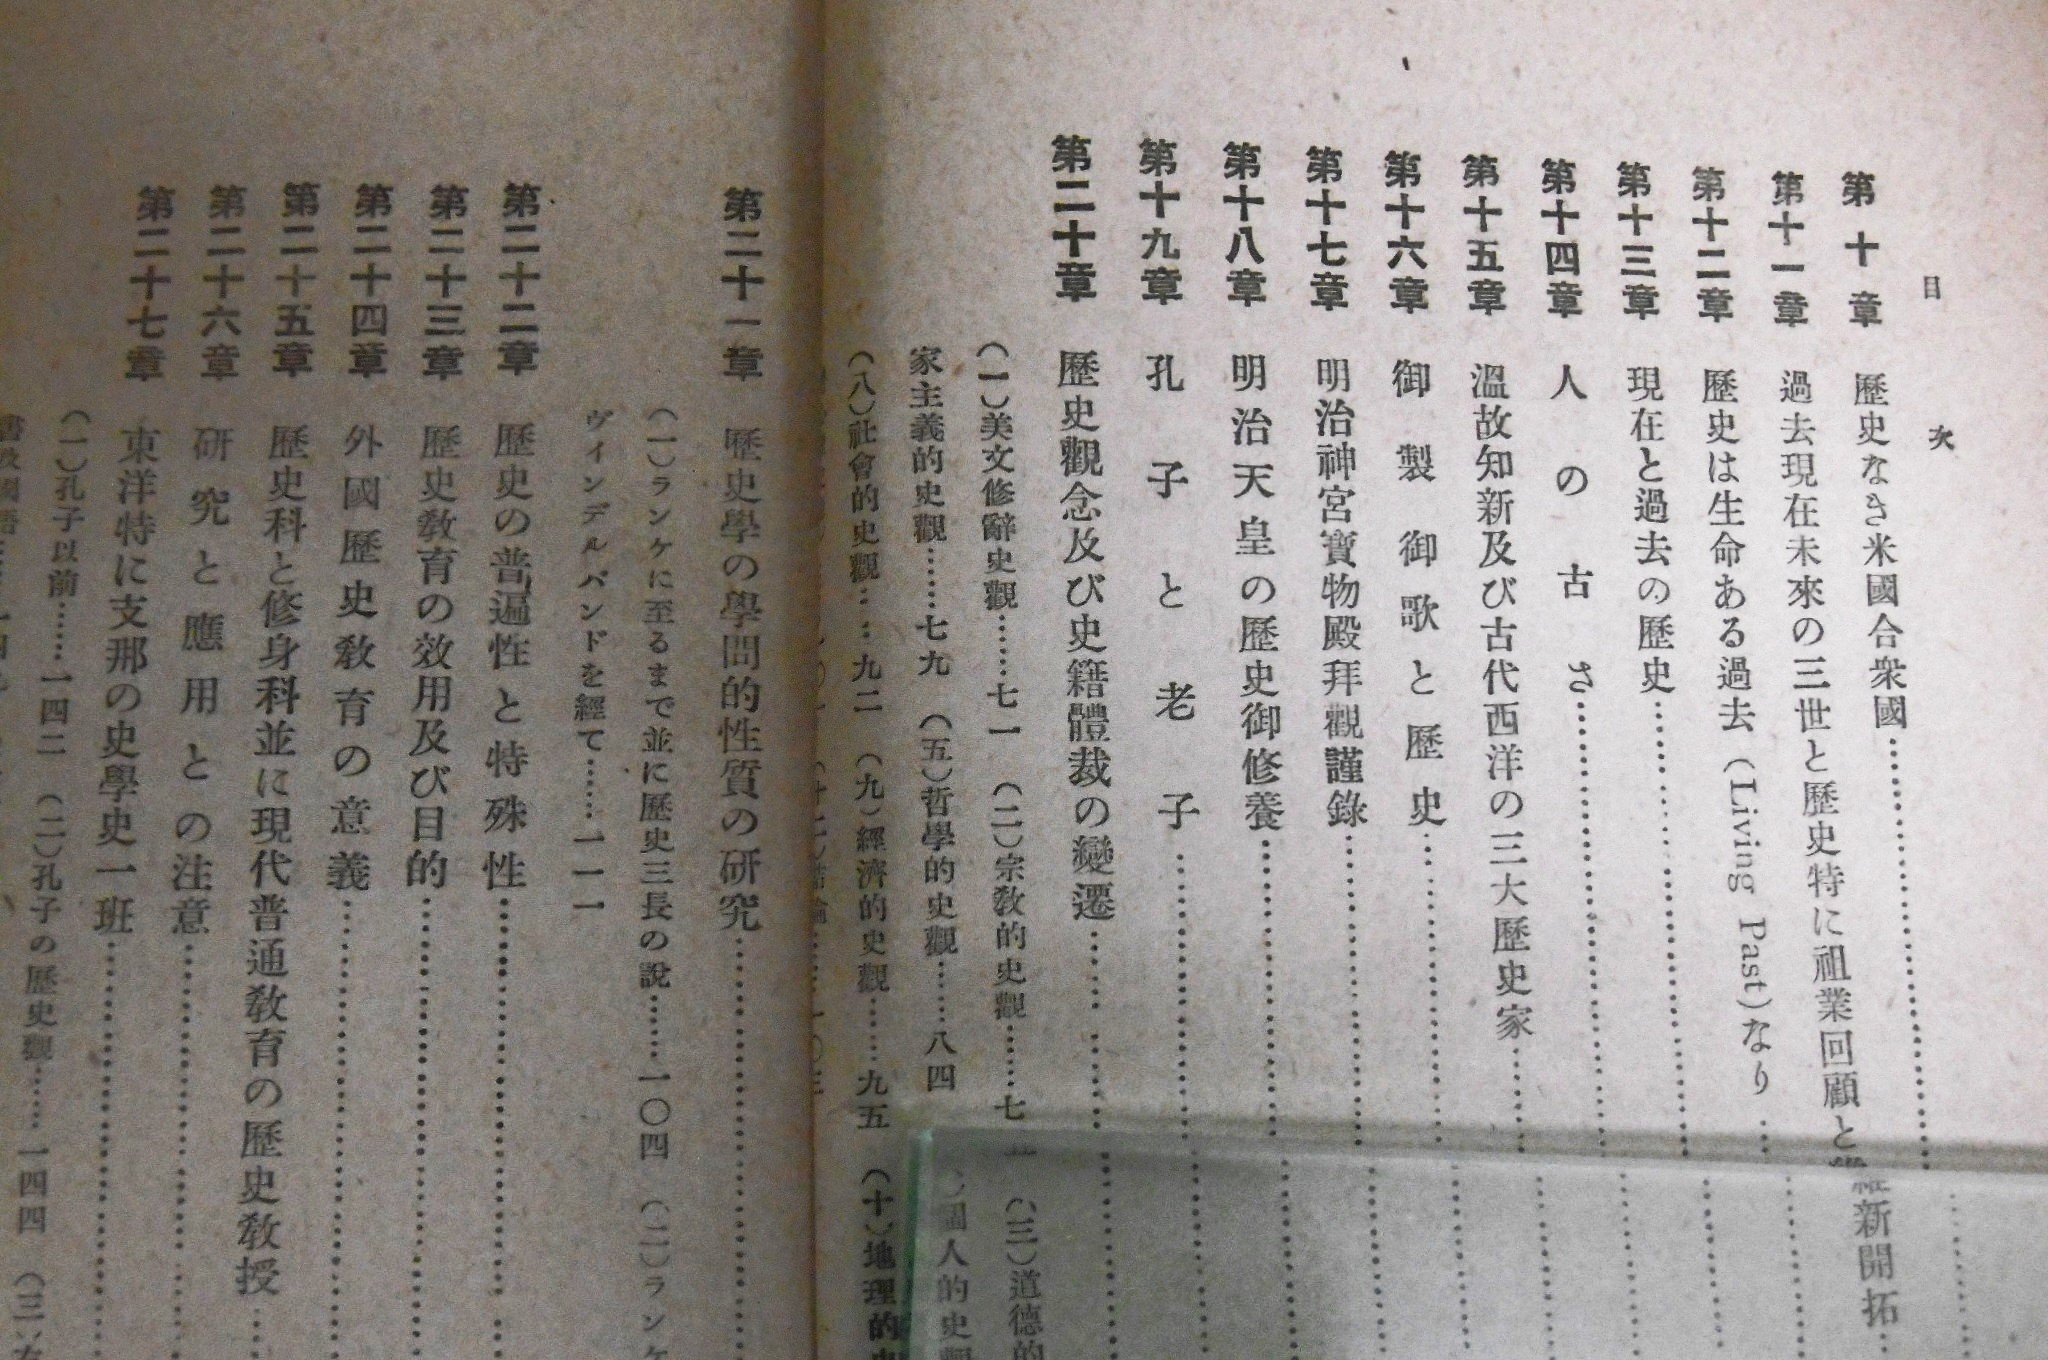 目次
第十章 歷史なき米國合衆國
第十一章 過去現在未來の三世と歷史特に祖業回顧と維新開拓
第十二章 歷史は生命ある過去(Living Past)なり
第十三章 現在と過去の歷史
第十四章 人の古さ
第十五章 溫故知新及び古代西洋の三大歷史家
第十六章 御製御歌と歷史
第十七章 明治神宮寶物殿拜觀謹錄
第十八章 明治天皇の歷史御修養
第十九章 孔子と老子
第二十章 歷史觀念及び史籍體裁の變遷
(一)美文修辭史觀……七一 (二)宗敎的史觀……七五 (三)道德的
家主義的史觀……七九 (五)哲學的史觀……八四 個人的史觀
(八)社會的史觀……九二 (九)經濟的史觀……九五 (十)地理的
第二十一章 歷史學の學問的性質の研究
(一)ランケに至るまで並に歷史三長の說……一〇四 (二)ランケ
ヴインデルバンドを經て……一一一
第二十二章 歷史の普遍性と特殊性
第二十三章 歷史敎育の效用及び目的
第二十四章 外國歷史敎育の意義
第二十五章 歷史科と修身科並に現代普通敎育の歷史敎授
第二十六章 研究と應用との注意
第二十七章 東洋特に支那の史學史一班
(一)孔子以前……一四二 (二)孔子の歷史觀……一四四 (三)